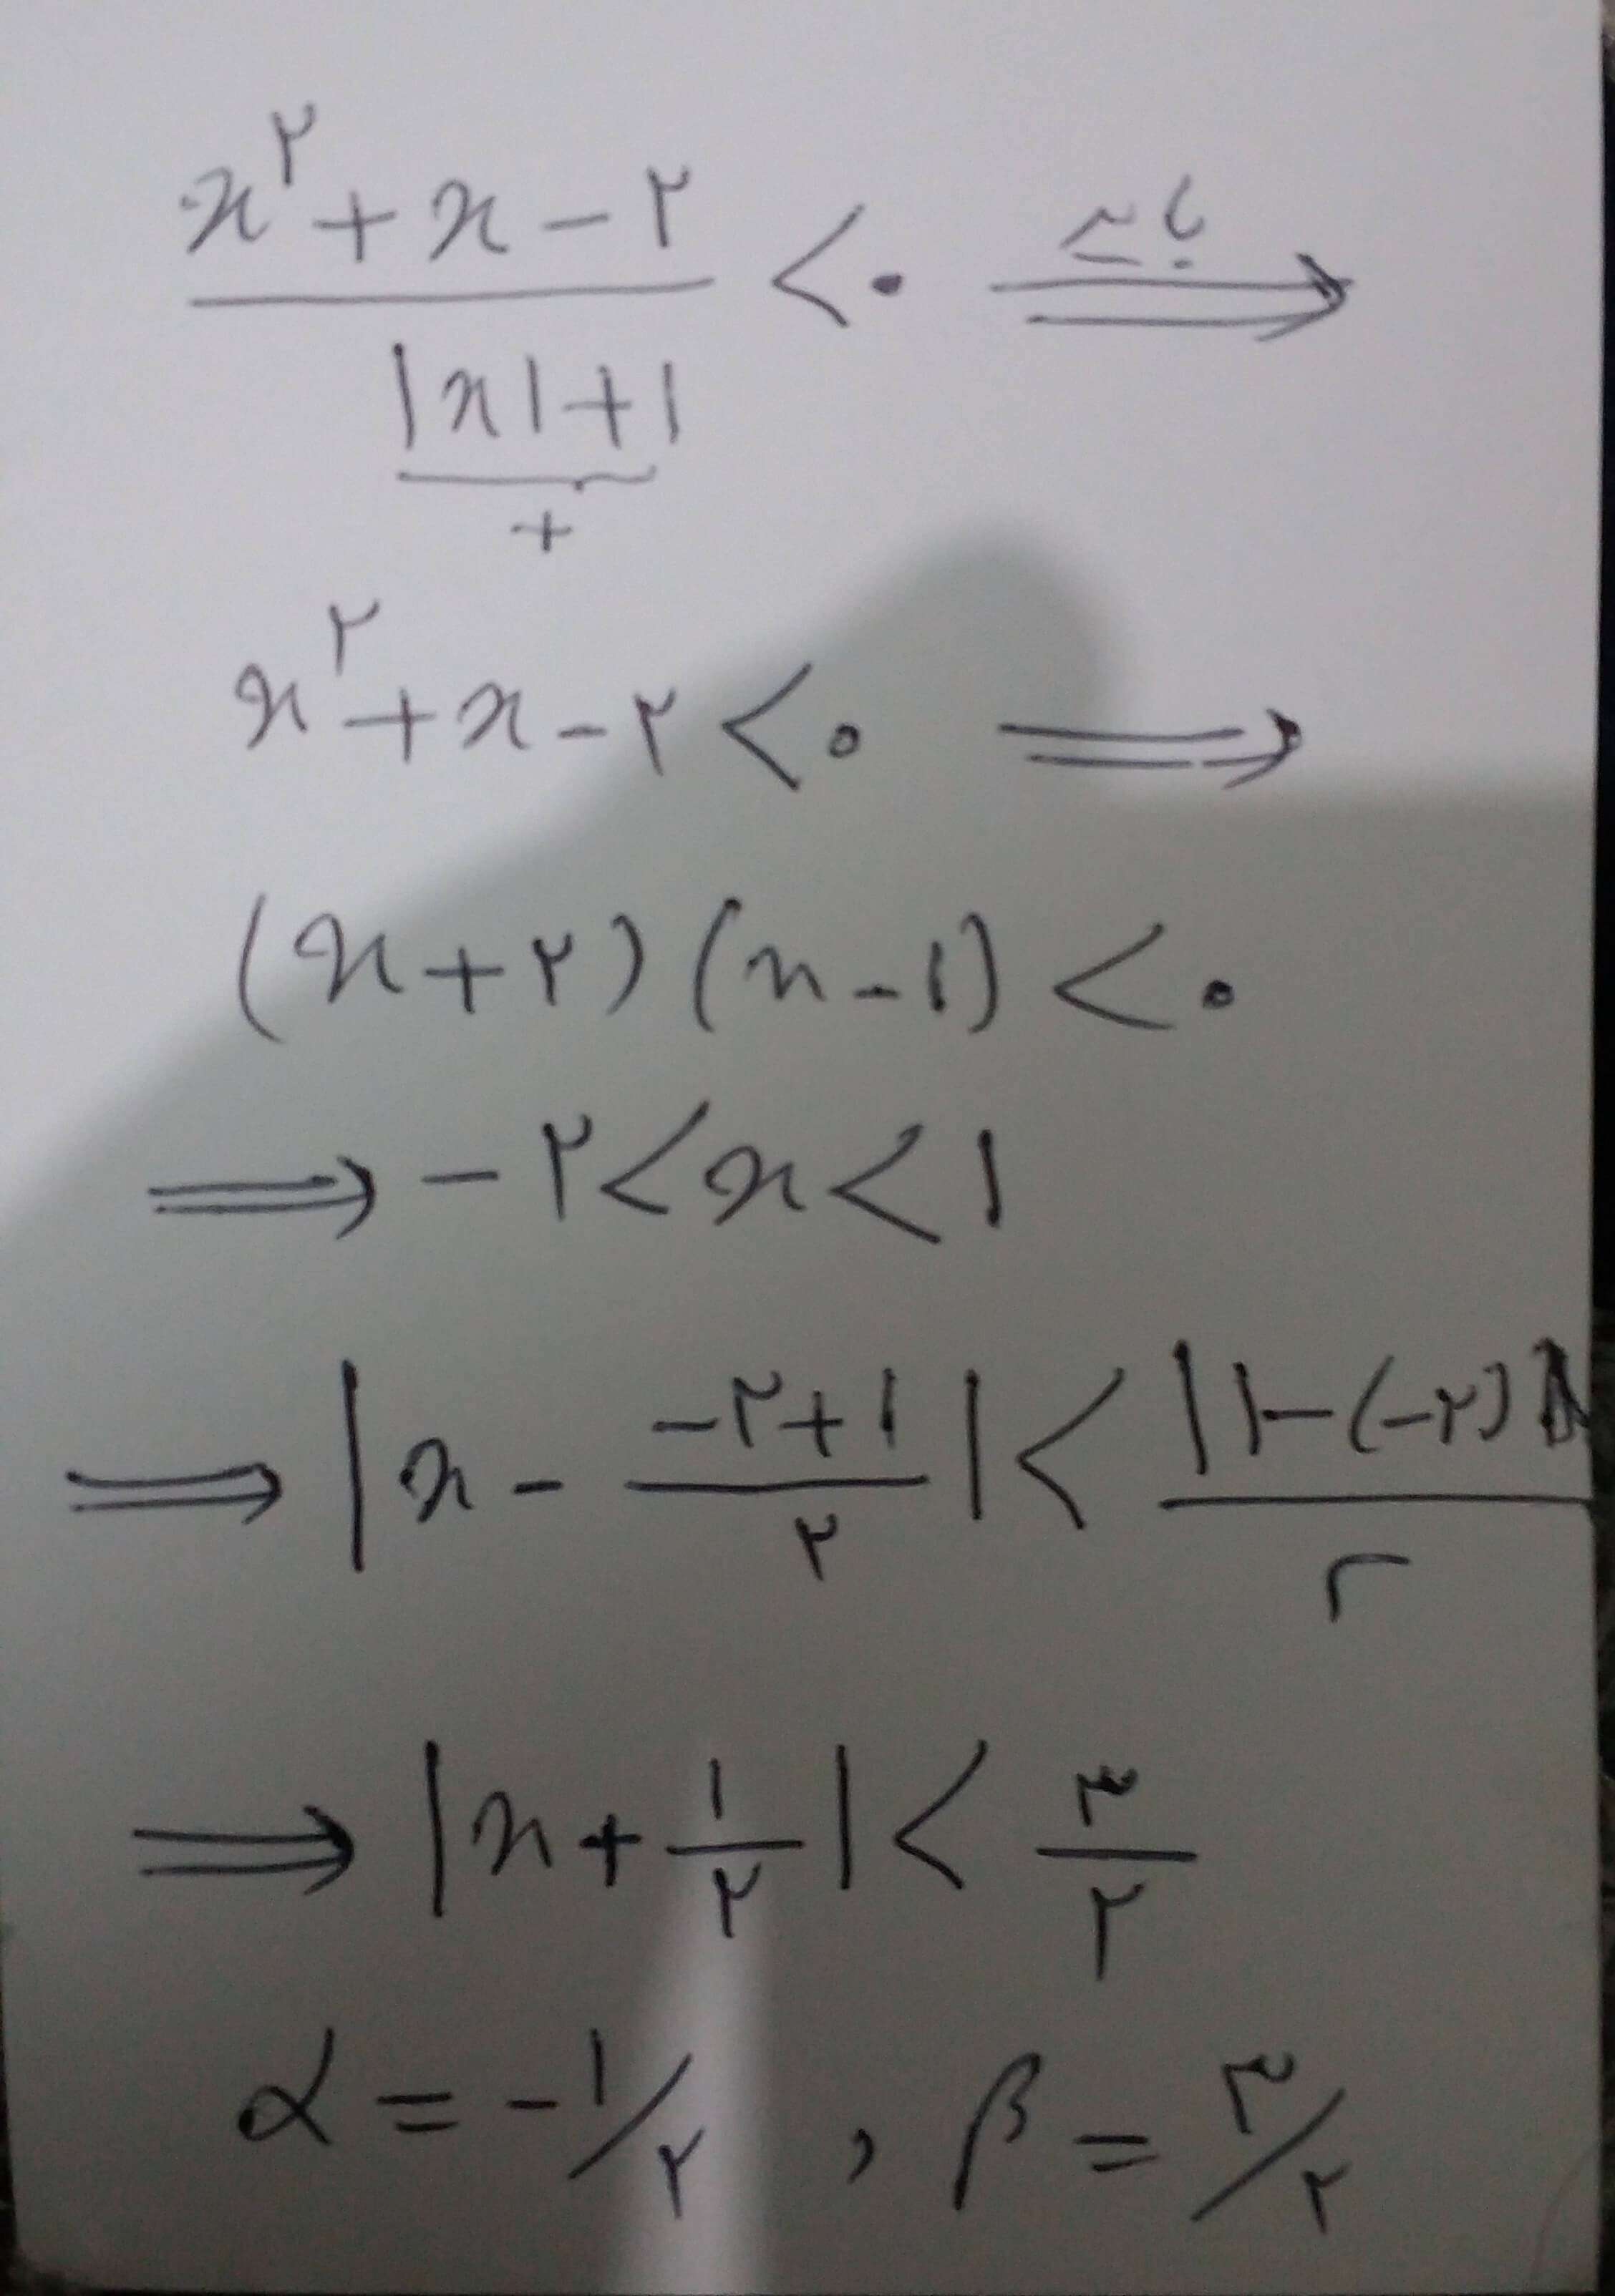 x^۲ + x - ۲ / |x| + ۱ < ۰ باید ⟹
+
x^۲ + x - ۲ < ۰ ⟹
(x + ۲)(x - ۱) < ۰
⟹ -۲ < x < ۱
⟹ |x - (-۲ + ۱)/۲| < |۱ - (-۲)|/۲
⟹ |x + ۱/۲| < ۳/۲
α = -۱/۲ , β = ۳/۲